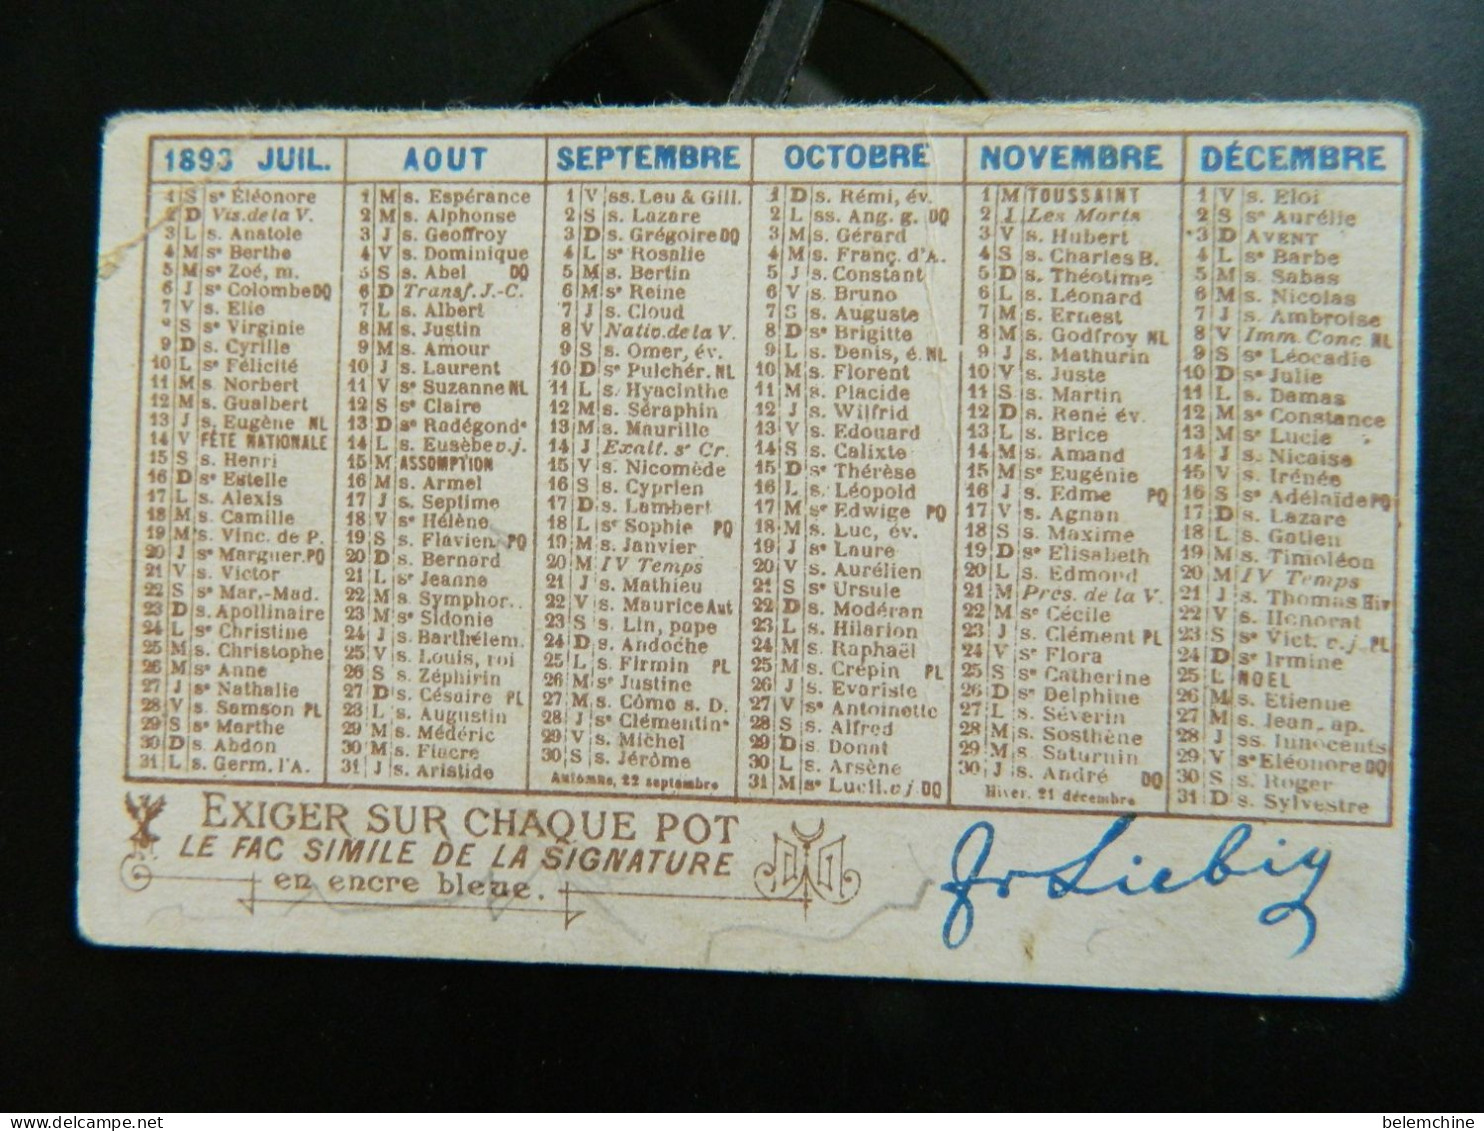 1893 JUIL.
1 S sᵉ Éléonore
2 D Vis. de la V.
3 L s. Anatole
4 M sᵉ Berthe
5 M s. Zoé, m.
6 J sᵉ Colombe DQ
7 V s. Elie
8 S sᵉ Virginie
9 D s. Cyrille
10 L sᵉ Félicité
11 M s. Norbert
12 M s. Gualbert
13 J s. Eugène NL
14 V FÊTE NATIONALE
15 S s. Henri
16 D sᵉ Estelle
17 L s. Alexis
18 M s. Camille
19 M s. Vinc. de P.
20 J sᵉ Marguer. PQ
21 V s. Victor
22 S sᵉ Mar.-Mad.
23 D s. Apollinaire
24 L sᵉ Christine
25 M s. Christophe
26 M sᵉ Anne
27 J sᵉ Nathalie
28 V s. Samson PL
29 S sᵉ Marthe
30 D s. Abdon
31 L s. Germ. l'A.
AOUT
1 M s. Espérance
2 M s. Alphonse
3 J s. Geoffroy
4 V s. Dominique
5 S s. Abel DQ
6 D Transf. J.-C.
7 L s. Albert
8 M s. Justin
9 M s. Amour
10 J s. Laurent
11 V sᵉ Suzanne NL
12 S sᵉ Claire
13 D sᵉ Radégondᵉ
14 L s. Eusèbe v.j.
15 M ASSOMPTION
16 M s. Armel
17 J s. Septime
18 V sᵉ Hélène
19 S s. Flavien PQ
20 D s. Bernard
21 L sᵉ Jeanne
22 M s. Symphor..
23 M sᵉ Sidonie
24 J s. Barthélem.
25 V s. Louis, roi
26 S s. Zéphirin
27 D s. Césaire PL
28 L s. Augustin
29 M s. Médéric
30 M s. Fiacre
31 J s. Aristide
SEPTEMBRE
1 V ss. Leu & Gill.
2 S s. Lazare
3 D s. Grégoire DQ
4 L sᵉ Rosalie
5 M s. Bertin
6 M sᵉ Reine
7 J s. Cloud
8 V Nativ. de la V.
9 S s. Omer, év.
10 D sᵉ Pulchér. NL
11 L s. Hyacinthe
12 M s. Séraphin
13 M s. Maurille
14 J Exalt. sᵉ Cr.
15 V s. Nicomède
16 S s. Cyprien
17 D s. Lambert
18 L sᵉ Sophie PQ
19 M s. Janvier
20 M IV Temps
21 J s. Mathieu
22 V s. Maurice Aut
23 S s. Lin, pape
24 D s. Andoche
25 L s. Firmin PL
26 M sᵉ Justine
27 M s. Côme s. D.
28 J sᵉ Clémentinᵉ
29 V s. Michel
30 S s. Jérôme
Automne, 22 septembre
OCTOBRE
1 D s. Rémi, év.
2 L ss. Ang. g. DQ
3 M s. Gérard
4 M s. Franç. d'A.
5 J s. Constant
6 V s. Bruno
7 S s. Auguste
8 D sᵉ Brigitte
9 L s. Denis, é. NL
10 M s. Florent
11 M s. Placide
12 J s. Wilfrid
13 V s. Edouard
14 S s. Calixte
15 D sᵉ Thérèse
16 L s. Léopold
17 M sᵉ Edwige PQ
18 M s. Luc, év.
19 J sᵉ Laure
20 V s. Aurélien
21 S sᵉ Ursule
22 D s. Modéran
23 L s. Hilarion
24 M s. Raphaël
25 M s. Crépin PL
26 J s. Evariste
27 V sᵉ Antoinette
28 S s. Alfred
29 D s. Donat
30 L s. Arsène
31 M sᵉ Lucil. v.j DQ
NOVEMBRE
1 M TOUSSAINT
2 J Les Morts
3 V s. Hubert
4 S s. Charles B.
5 D s. Théotime
6 L s. Léonard
7 M s. Ernest
8 M s. Godfroy NL
9 J s. Mathurin
10 V s. Juste
11 S s. Martin
12 D s. René év.
13 L s. Brice
14 M s. Amand
15 M sᵉ Eugénie
16 J s. Edme PQ
17 V s. Agnan
18 S s. Maxime
19 D sᵉ Elisabeth
20 L s. Edmond
21 M Prés. de la V.
22 M sᵉ Cécile
23 J s. Clément PL
24 V sᵉ Flora
25 S sᵉ Catherine
26 D sᵉ Delphine
27 L s. Séverin
28 M s. Sosthène
29 M s. Saturnin
30 J s. André DQ
Hiver, 21 décembre
DÉCEMBRE
1 V s. Eloi
2 S sᵉ Aurélie
3 D AVENT
4 L sᵉ Barbe
5 M s. Sabas
6 M s. Nicolas
7 J s. Ambroise
8 V Imm. Conc NL
9 S sᵉ Léocadie
10 D sᵉ Julie
11 L s. Damas
12 M sᵉ Constance
13 M sᵉ Lucie
14 J s. Nicaise
15 V s. Irénée
16 S sᵉ Adélaïde PQ
17 D s. Lazare
18 L s. Gatien
19 M s. Timoléon
20 M IV Temps
21 J s. Thomas Hiv
22 V s. Honorat
23 S sᵉ Vict. v.j. PL
24 D sᵉ Irmine
25 L NOEL
26 M s. Etienne
27 M s. Jean, ap.
28 J ss. Innocents
29 V sᵉ Eléonore DQ
30 S s. Roger
31 D s. Sylvestre
EXIGER SUR CHAQUE POT
LE FAC SIMILE DE LA SIGNATURE
en encre bleue.
Jv Liebig
belemchine